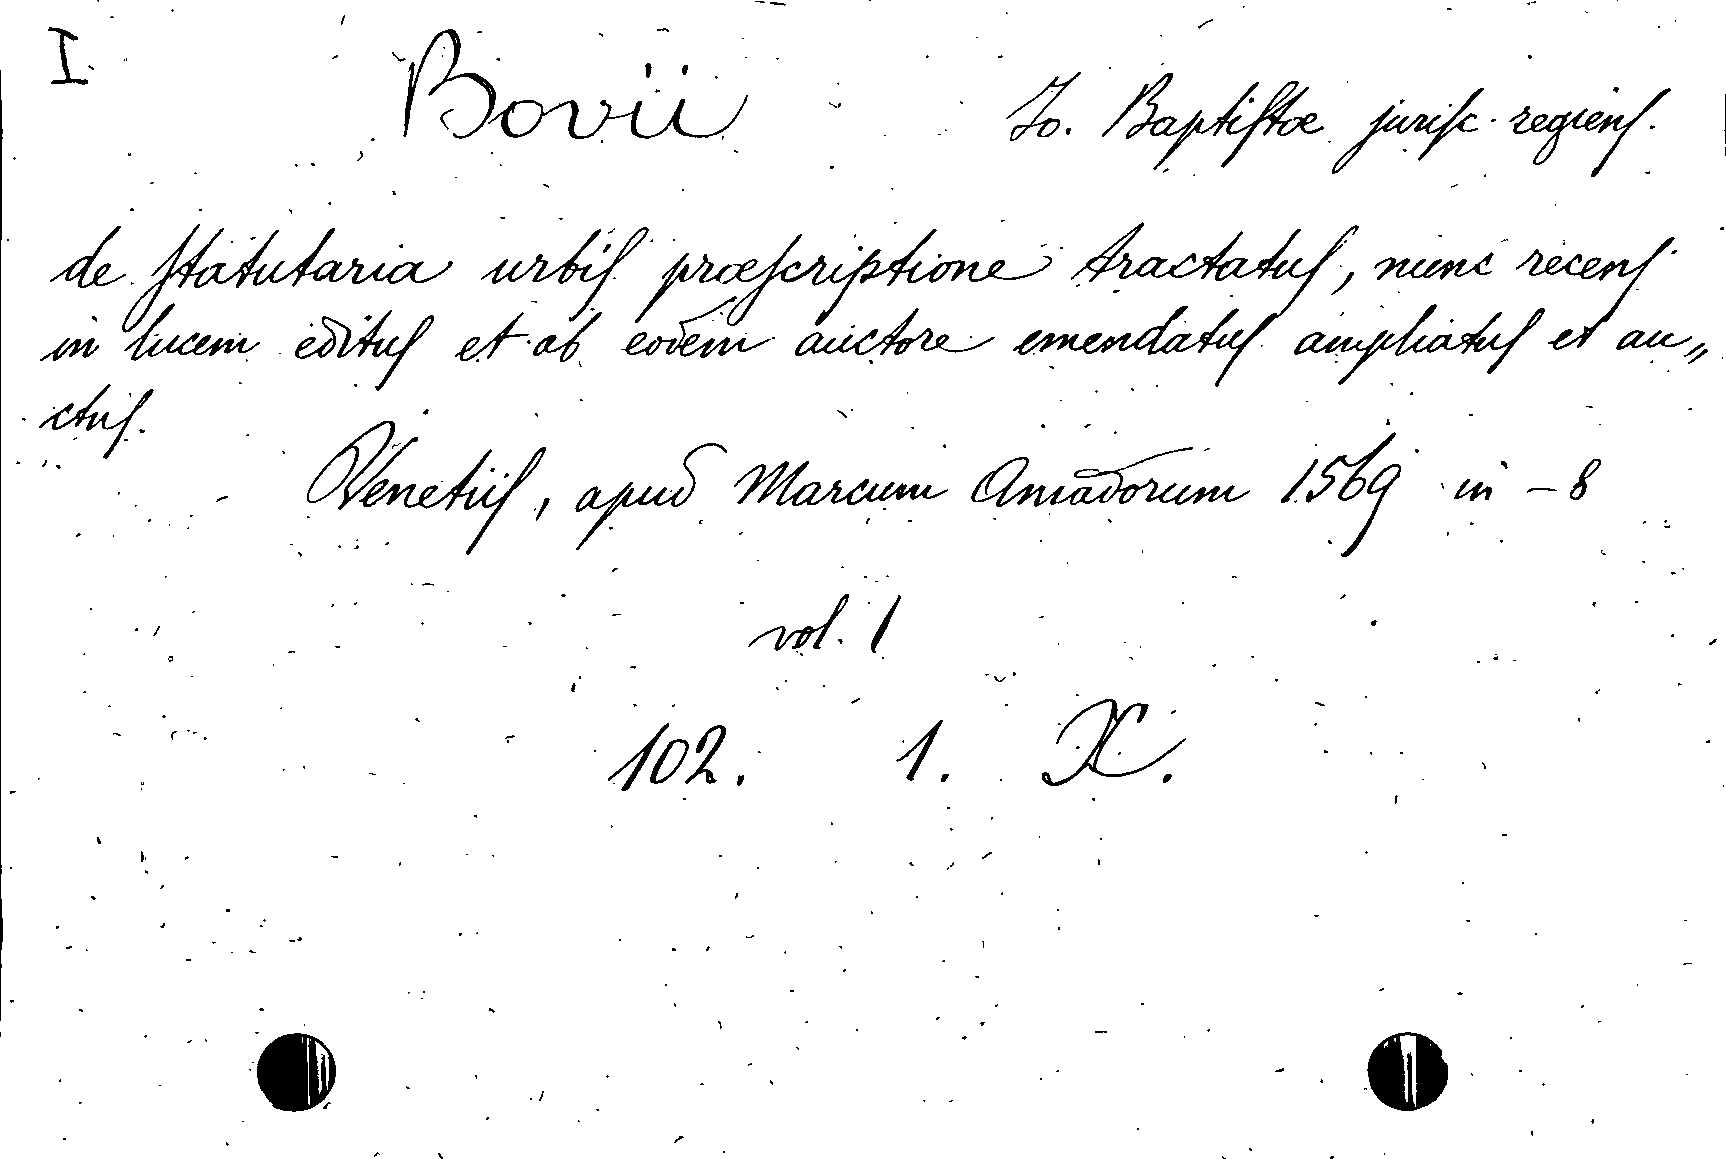 I
Bovii Jo. Baptistæ jurisc. regiens.
de statutaria urbis præscriptione tractatus, nunc recens
in lucem editus et ab eodem auctore emendatus ampliatus et au„
ctus.
Venetiis, apud Marcum Amadorum 1569 in - 8
vol. 1
102. 1. X.